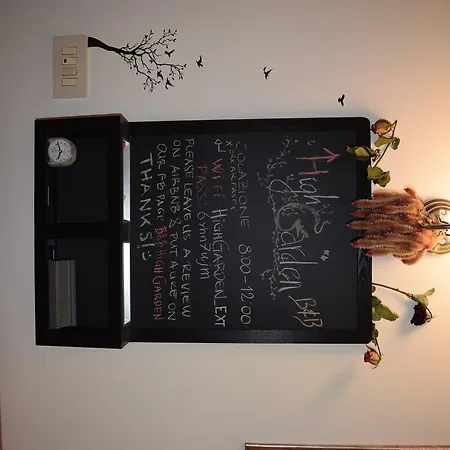 High Garden B&B
COLAZIONE 8:00-12:00
BREAKFAST
WIFI: HIGHGARDEN_EXT
PASS:
PLEASE LEAVE US A REVIEW
ON AIRBNB & PUT A LIKE ON
OUR FB PAGE B&B HIGH GARDEN
THANKS!